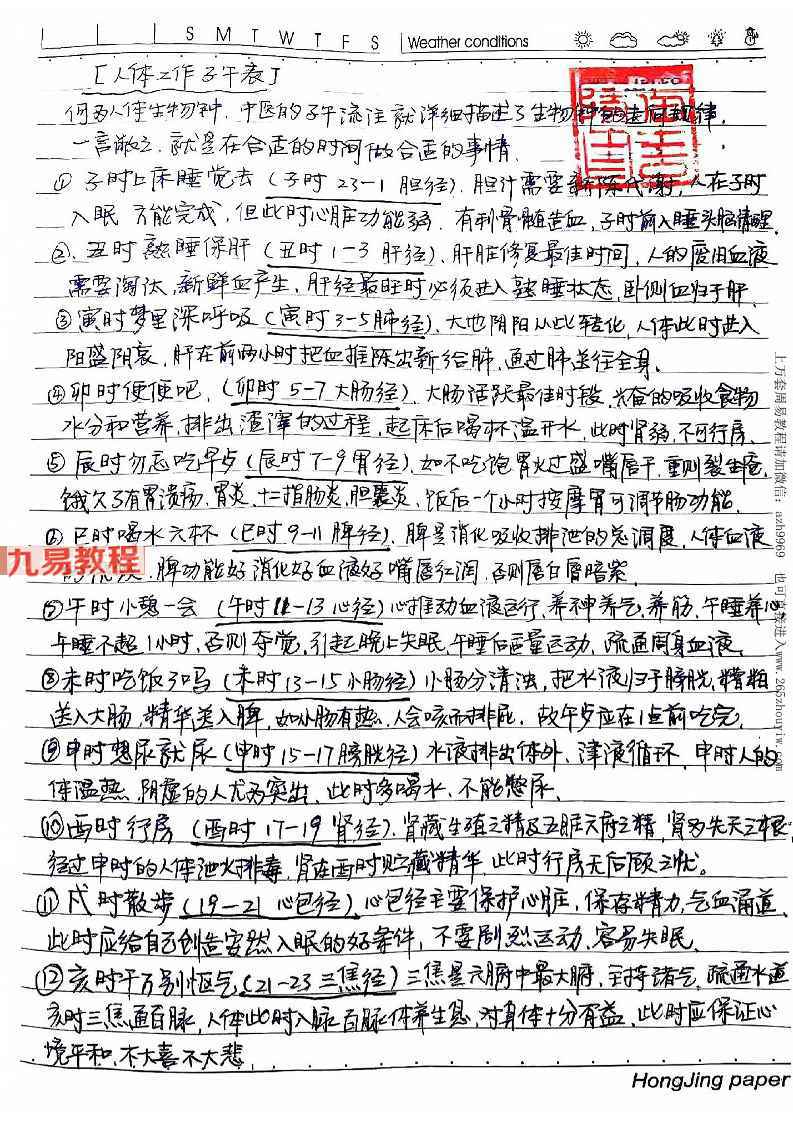 S M T W T F S Weather conditions
[人体工作子午表]
何为人体生物钟,中医的子午流注就详细描述了生物钟的运行规律,
一言敝之,就是在合适的时间做合适的事情.
① 子时上床睡觉去 (子时 23-1 胆经). 胆汁需要新陈代谢,人在子时
入眠 方能完成,但此时心脏功能弱. 有利骨髓造血,子时前入睡头脑清醒
②.丑时熟睡保肝 (丑时 1-3 肝经).肝脏修复最佳时间,人的废旧血液
需要淘汰,新鲜血产生,肝经最旺时必须进入熟睡状态,卧侧血归于肝.
③ 寅时梦里深呼吸 (寅时3-5肺经). 大地阴阳从此转化,人体此时进入
阳盛阴衰,肝在前两小时把血推陈出新给肺,通过肺送往全身.
④ 卯时便便吧, (卯时 5-7 大肠经). 大肠活跃最佳时段,兴奋的吸收食物
水分和营养,排出渣滓的过程,起床后喝杯温开水,此时肾弱,不可行房.
⑤ 辰时勿忘吃早点 (辰时7-9胃经),如不吃饱胃火过盛嘴唇干,重则裂生疮,
饿久了有胃溃疡,胃炎,十二指肠炎,胆囊炎,饭后一个小时按摩胃可调节肠功能.
⑥ 巳时喝水六杯 (巳时 9-11 脾经).脾是消化吸收排泄的总调度,人体血液
脾功能好消化好血液好嘴唇红润,否则唇白唇暗紫.
⑦ 午时小憩一会 (午时 11-13 心经)心推动血液运行,养神养气,养筋,午睡养心
午睡不超1小时,否则夺觉,引起晚上失眠,午睡后适量运动,疏通周身血液.
⑧ 未时吃饭了吗 (未时13-15小肠经)小肠分清浊,把水液归于膀胱,糟粕
送入大肠,精华送入脾,如小肠有热,人会咳而排屁. 故午步应在1点前吃完.
⑨ 申时想尿就尿 (申时 15-17膀胱经)水液排出体外,津液循环,申时人的
体温热,阴虚的人尤为突出,此时多喝水,不能憋尿.
⑩ 酉时行房 (酉时 17-19 肾经),肾藏生殖之精及五脏六府之精,肾为先天之根
经过申时的人体泄火排毒,肾在酉时贮藏精华,此时行房无后顾之忧。
⑪ 戌时散步 (19-21 心包经)心包经主要保护心脏,保存精力,气血涌道,
此时应给自己创造安然入眠的好条件,不要剧烈运动,容易失眠.
⑫ 亥时千万别怄气 (21-23 三焦经)三焦是六腑中最大腑,主持诸气,疏通水道
亥时三焦通百脉,人体此时入眠百脉休养生息,对身体十分有益,此时应保证心
境平和,不大喜不大悲,
HongJing paper
九易教程
上万套周易教程请加微信:azh9969 也可直接进入www.265zhouyiw.com